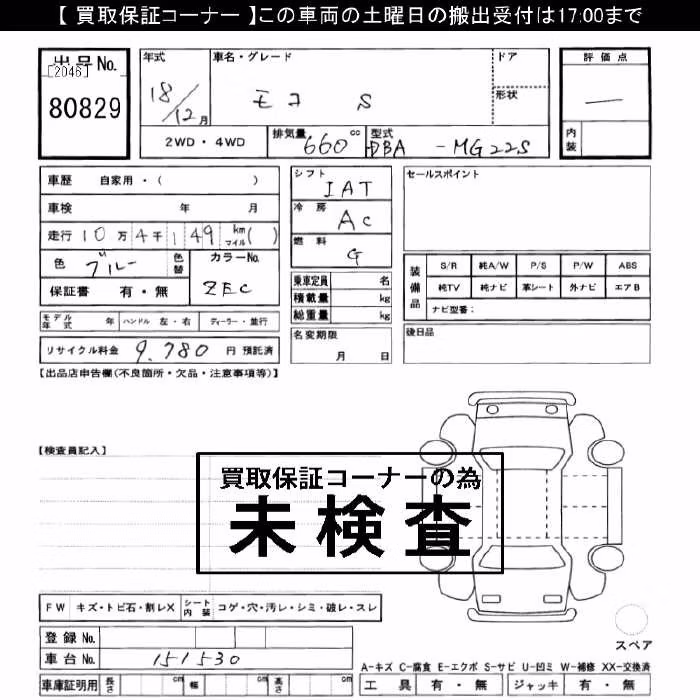 【 買取保証コーナー 】この車両の土曜日の搬出受付は17:00まで
出品No.
[2046]
80829
年式 18/12月
車名・グレード モコ S
ドア
形状
2WD・4WD
排気量 660 cc
型式 DBA-MG22S
評価点
—
内装
車歴 自家用・( )
車検 年 月
走行 10万4千149 km マイル( )
色 ブルー 色替
カラーNo. ZEC
保証書 有・無
モデル年式 年 ハンドル 左・右 ディーラー・並行
リサイクル料金 9,780 円 預託済
シフト IAT
冷房 AC
燃料 G
乗車定員 名
積載量 kg
総重量 kg
名変期限
月 日
セールスポイント
装備品
S/R 純A/W P/S P/W ABS
純TV 純ナビ 革シート 外ナビ エアB
ナビ型番:
後日品
【出品店申告欄(不良箇所・欠品・注意事項等)】
【検査員記入】
買取保証コーナーの為
未検査
FW キズ・トビ石・割レX シート内装 コゲ・穴・汚レ・シミ・破レ・スレ
登録No.
車台No. 151530
車庫証明用 長さ cm 幅 cm 高さ cm
スペア
A-キズ C-腐食 E-エクボ S-サビ U-凹ミ W-補修 XX-交換済
工具 有・無 ジャッキ 有・無